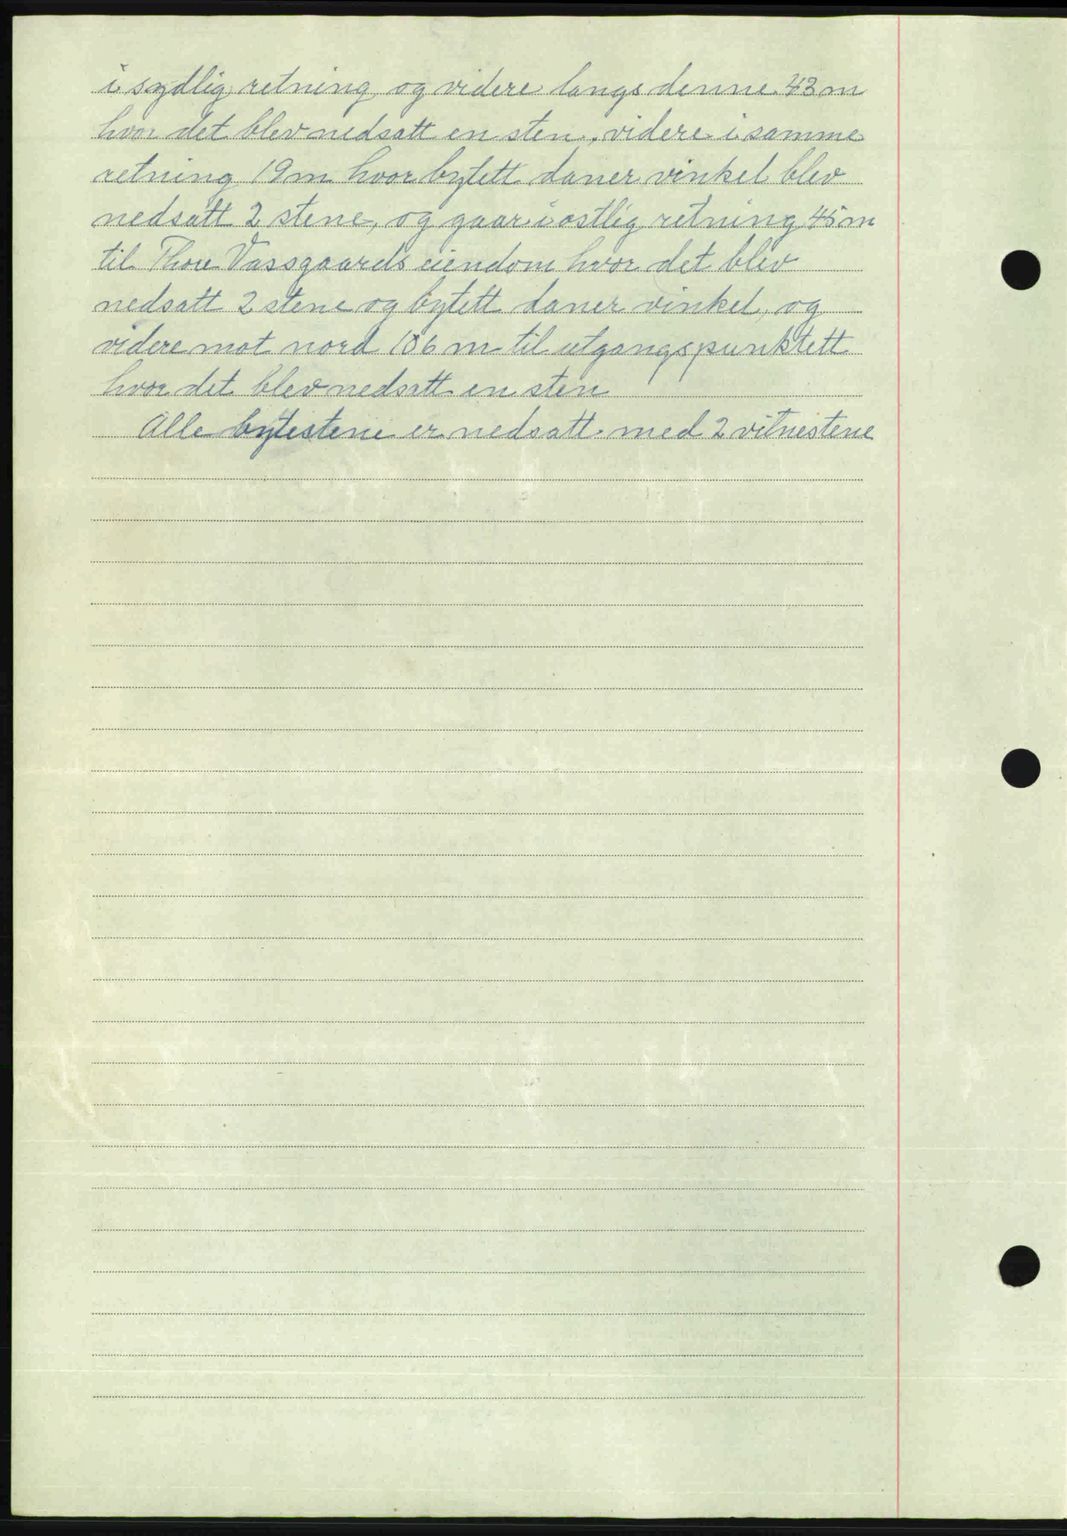 i sydlig retning og videre langs denne 43 m
hvor det blev nedsatt en sten, videre i samme
retning 19 m hvor bytett daner vinkel blev
nedsatt 2 stene, og gaar i ostlig retning 45 m
til Thore Vassgaards eiendom hvor det blev
nedsatt 2 stene og bytett daner vinkel, og
videre mot nord 106 m til utgangspunktett
hvor det blev nedsatt en sten
Alle bytestene er nedsatt med 2 vitnestene